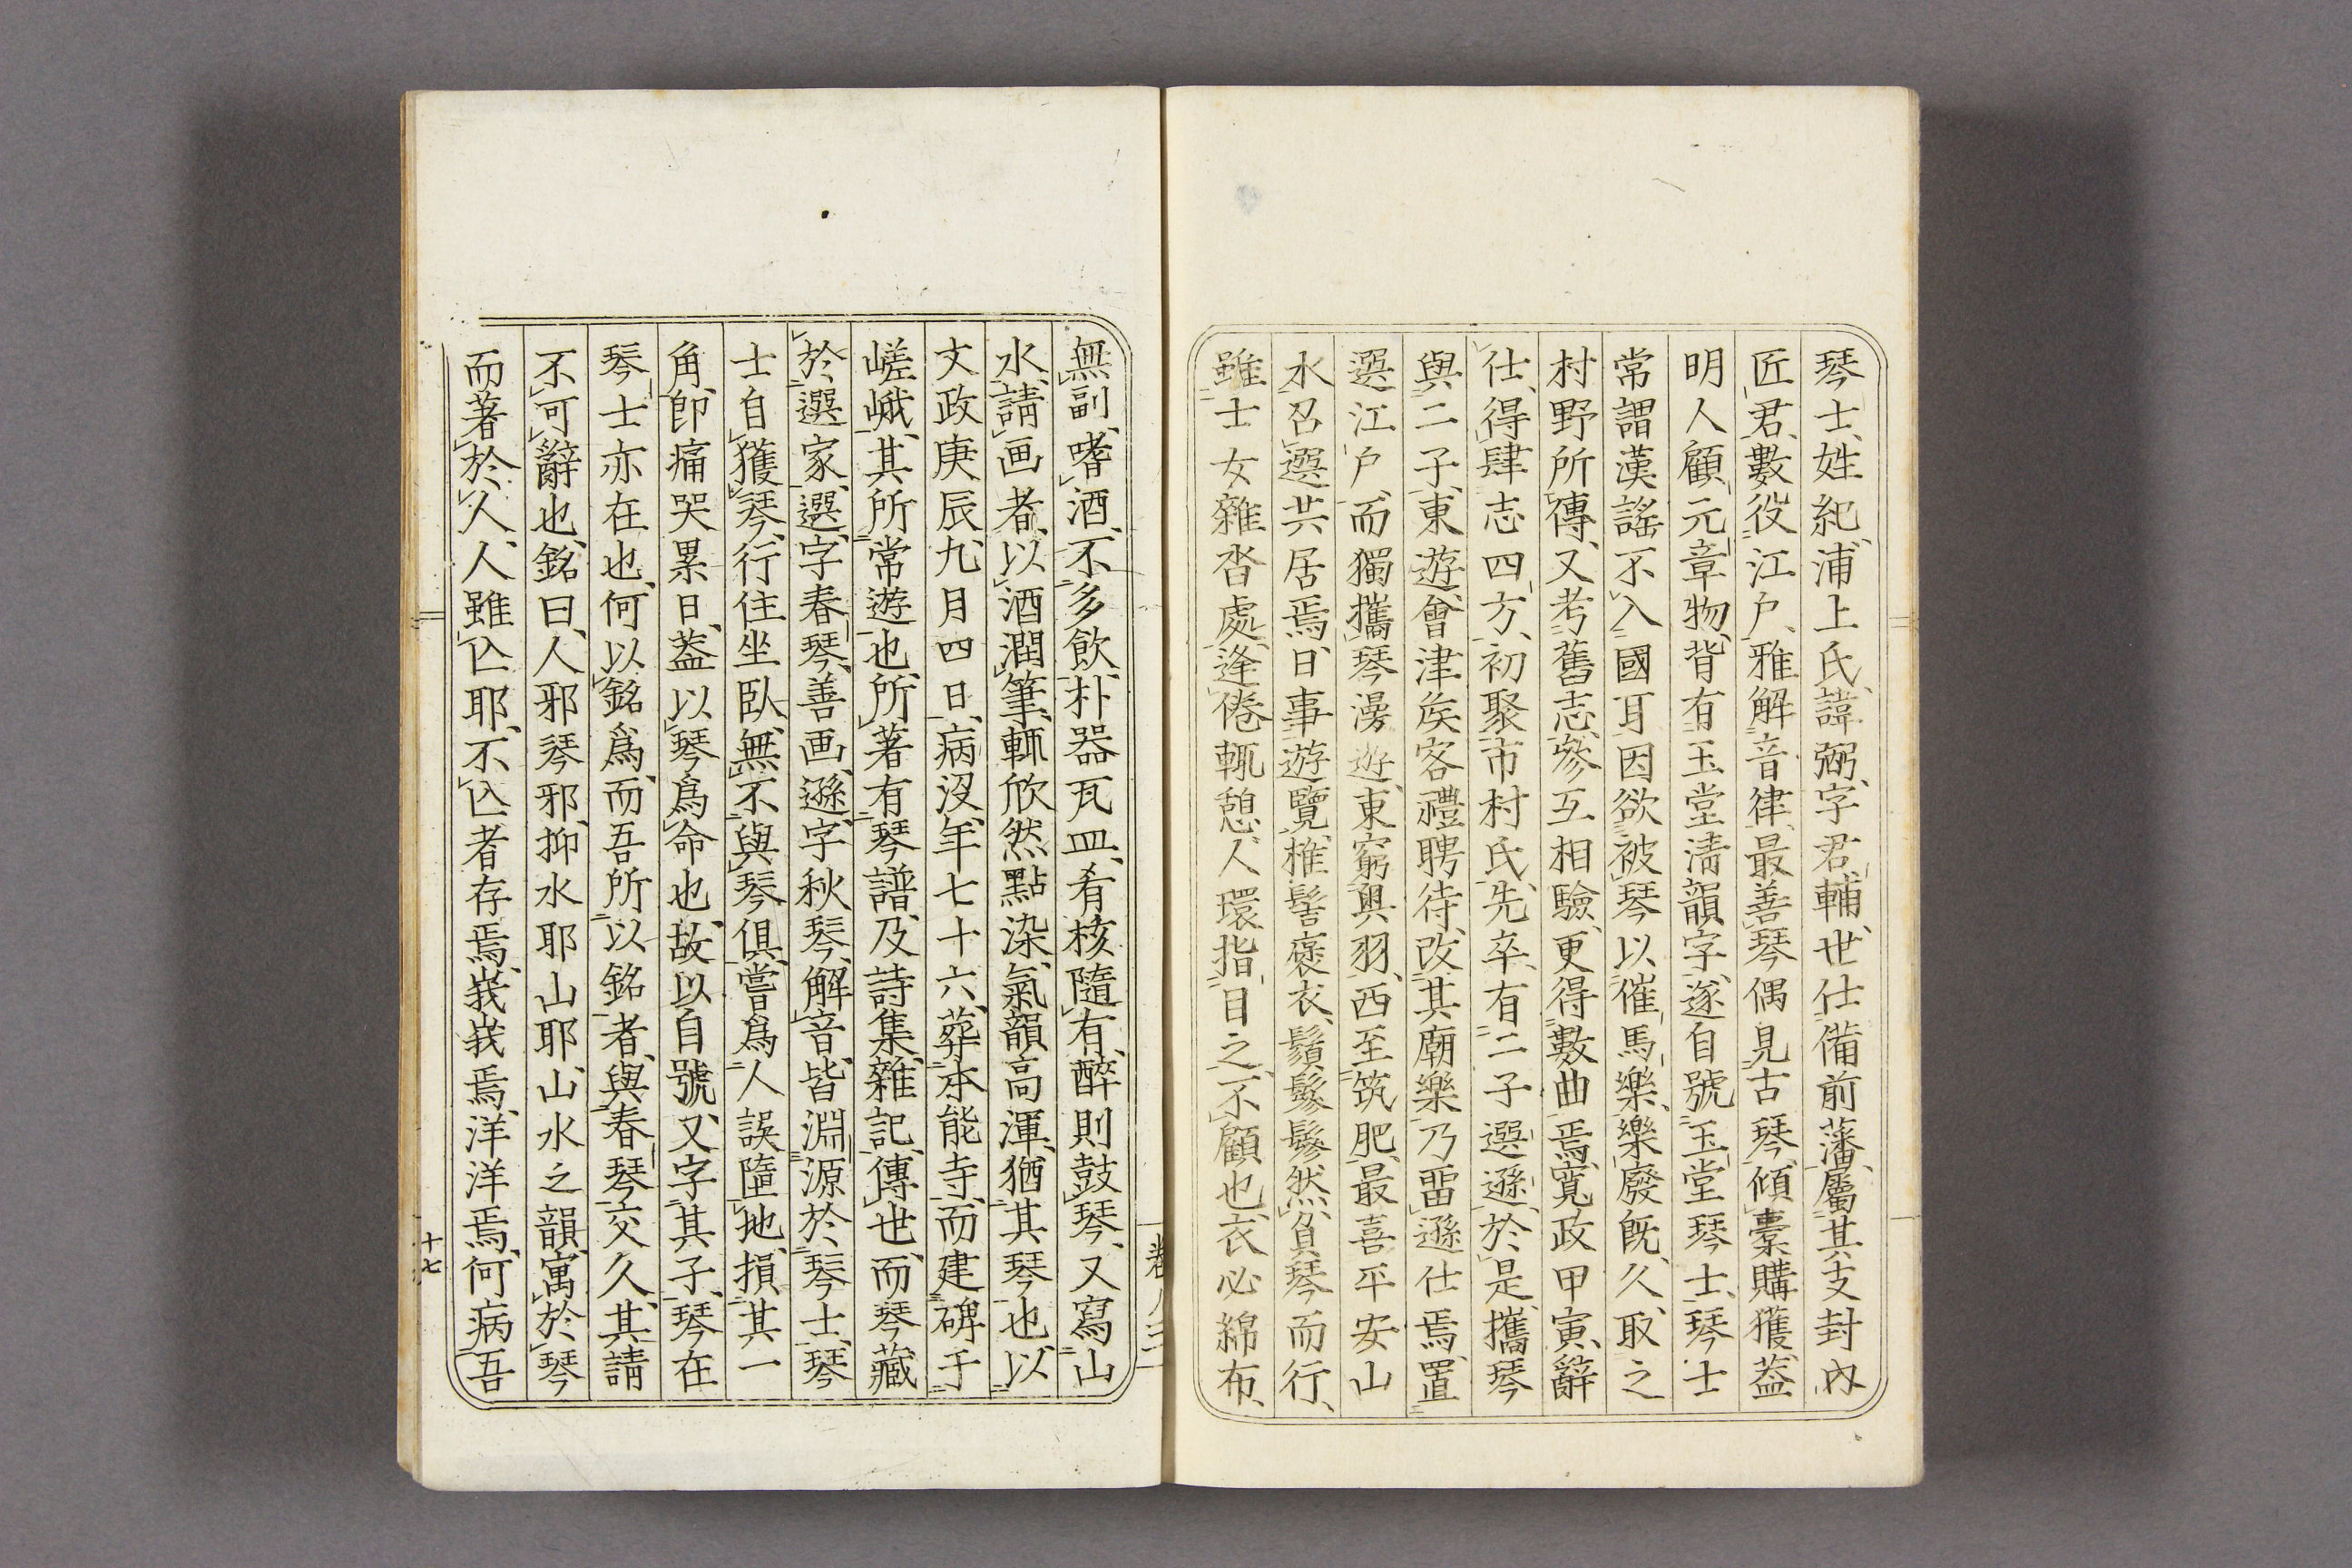 琴士、姓紀、浦上氏、諱弼、字君輔、世仕備前藩、屬其支封內
匠君、數役江戶、雅解音律、最善琴偶見古琴、傾囊購獲、蓋
明人顧元章物、背有玉堂清韻字、遂自號玉堂琴士、琴士
常謂漢謠不入國耳因欲被琴以催馬樂、樂廢既久、取之
村野所傳、又考舊志、參互相驗、更得數曲焉、寬政甲寅、辭
仕、得肆志四方、初聚市村氏、先卒、有二子選遜、於是攜琴
與二子、東遊、會津矦客禮聘待、改其廟樂乃畱遜仕焉、置
選江戶、而獨攜琴漫遊、東窮奧羽、西至筑肥、最喜平安山
水、召選共居焉、日事遊覽、椎髻褒衣、鬚鬖鬖然、負琴而行、
雖士女雜沓處、逢倦輒憩、人環指目之、不顧也、衣必綿布、
無副、嗜酒、不多飲、朴器瓦皿、肴核隨有、醉則鼓琴、又寫山
水、請画者、以酒潤筆、輒欣然點染、氣韻高渾、猶其琴也、以
文政庚辰、九月四日、病沒、年七十六、葬本能寺、而建碑于
嵯峨、其所常遊也、所著有琴譜、及詩集、雜記、傳世、而琴藏
於選家、選字春琴、善画、遜字秋琴、解音、皆淵源於琴士、琴
士自獲琴、行住坐臥、無不與琴俱、嘗爲人誤墮地、損其一
角、卽痛哭累日、蓋以琴爲命也、故以自號、又字其子、琴在
琴士亦在也、何以銘爲、而吾所以銘者、與春琴交久、其請
不可辭也、銘曰、人邪琴邪、抑水耶山耶、山水之韻、寓於琴
而著於人、人雖亾耶、不亾者存焉、峩峩焉、洋洋焉、何病吾
十七